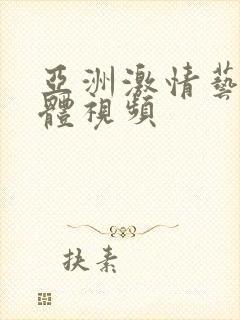 亞洲激情藝
體視頻
抉素